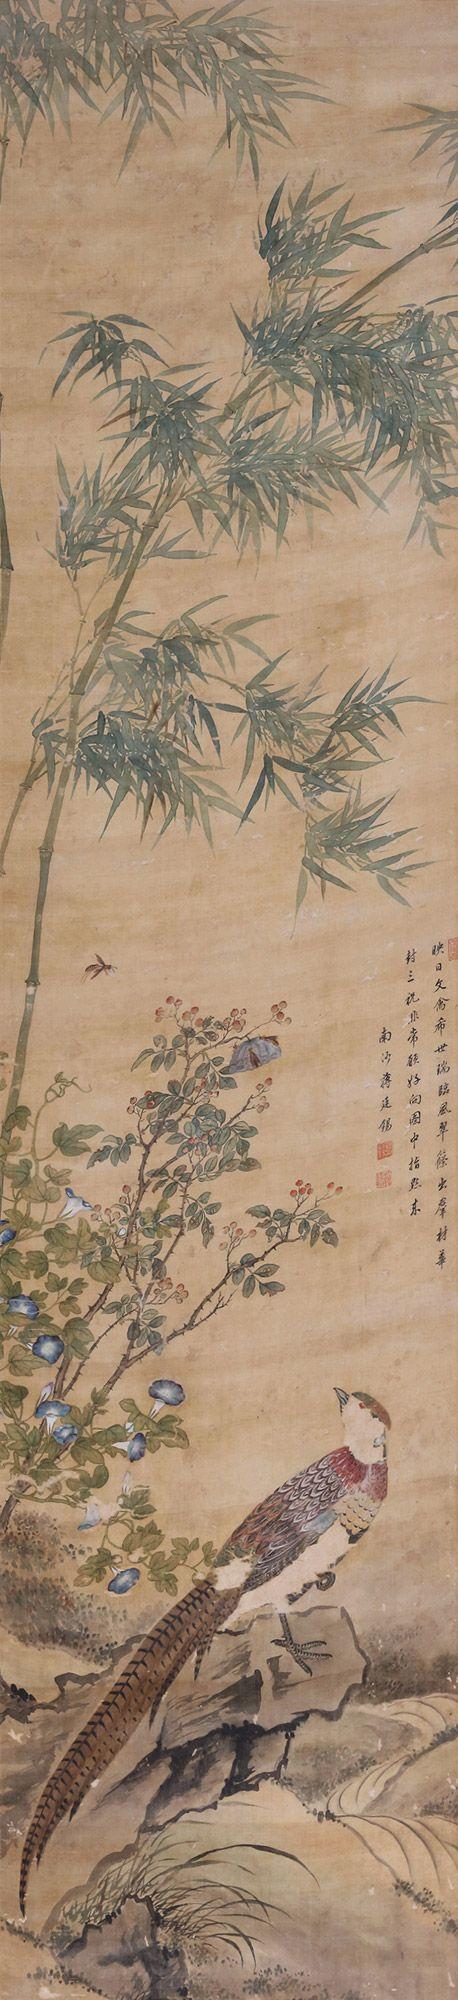 映日文禽希世瑞臨風翠篠出羣材華
封三祝非常頤好向圖中指點來
南沙蔣廷錫